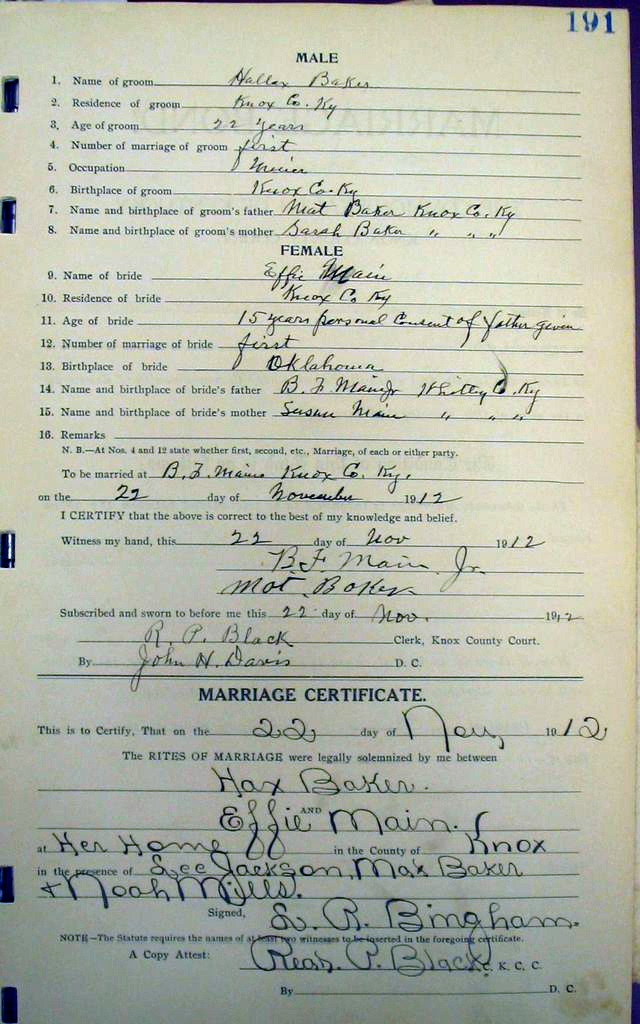 191
MALE
1. Name of groom Hallax Baker
2. Residence of groom Knox Co. Ky
3. Age of groom 22 years
4. Number of marriage of groom first
5. Occupation Miner
6. Birthplace of groom Knox Co. Ky
7. Name and birthplace of groom's father Mat Baker Knox Co. Ky
8. Name and birthplace of groom's mother Sarah Baker " " "
FEMALE
9. Name of bride Effie Main
10. Residence of bride Knox Co Ky
11. Age of bride 15 years personal Consent of father given
12. Number of marriage of bride first
13. Birthplace of bride Oklahoma
14. Name and birthplace of bride's father B. F. Main Jr Whitley Co. Ky
15. Name and birthplace of bride's mother Susan Main " " "
16. Remarks
N. B.—At Nos. 4 and 12 state whether first, second, etc., Marriage, of each or either party.
To be married at B. F. Mains Knox Co. Ky.
on the 22 day of November 1912
I CERTIFY that the above is correct to the best of my knowledge and belief.
Witness my hand, this 22 day of Nov 1912
B. F. Main Jr.
Mat Baker
Subscribed and sworn to before me this 22 day of Nov. 1912
R. P. Black Clerk, Knox County Court.
By John H. Davis D. C.
MARRIAGE CERTIFICATE.
This is to Certify, That on the 22 day of Nov, 1912
The RITES OF MARRIAGE were legally solemnized by me between
Hax Baker.
AND
Effie Main.
at Her Home in the County of Knox
in the presence of Lee Jackson, Max Baker
+ Noah Mills.
Signed, L. R. Bingham.
NOTE—The Statute requires the names of at least two witnesses to be inserted in the foregoing certificate.
A Copy Attest: P. Black C. K. C. C.
By D. C.